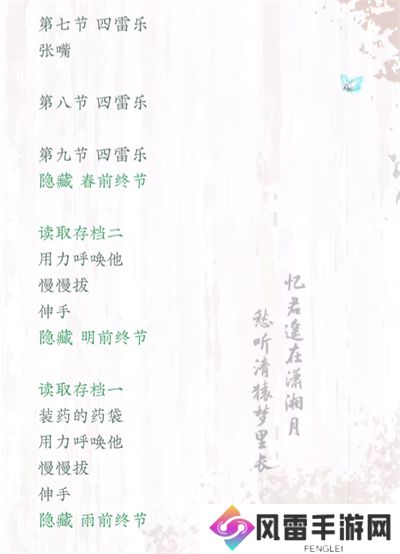 第七节 四雷乐
张嘴
第八节 四雷乐
第九节 四雷乐
隐藏 春前终节
读取存档二
用力呼唤他
慢慢拔
伸手
隐藏 明前终节
读取存档一
装药的药袋
用力呼唤他
慢慢拔
伸手
隐藏 雨前终节
忆君遥在潇湘月
愁听清猿梦里长
风雷手游网
FENGLEI